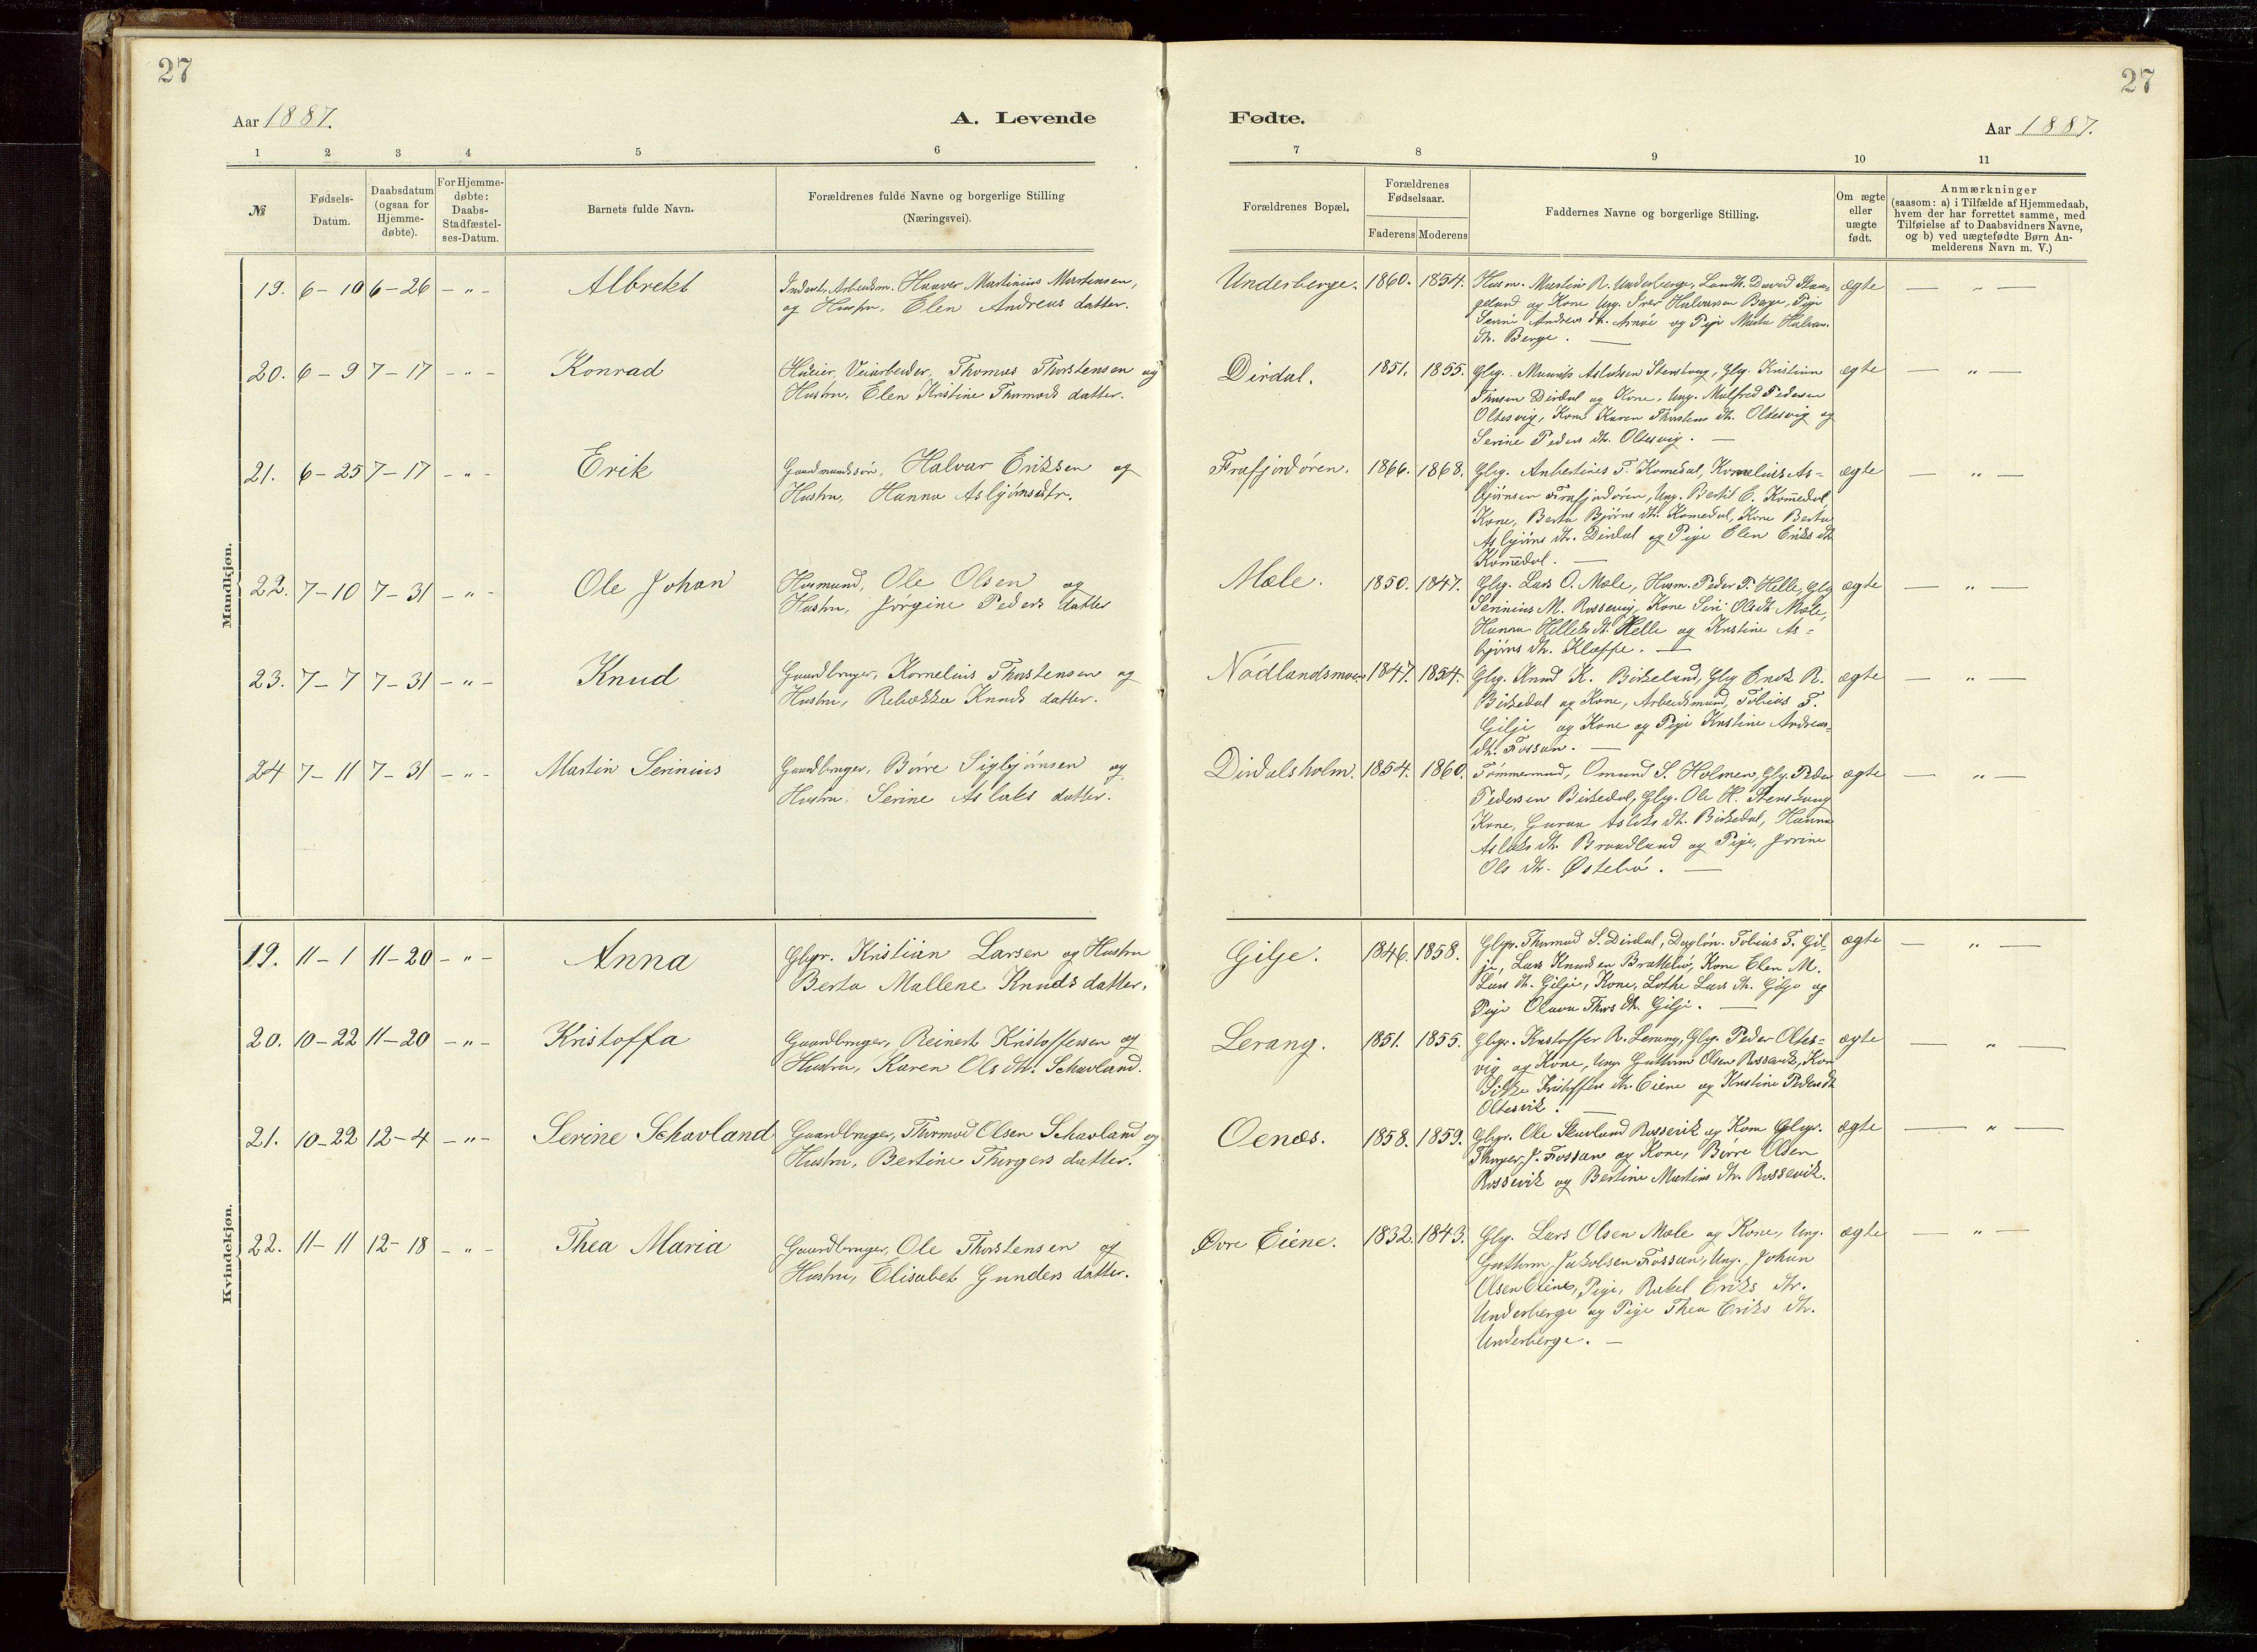 27
27
Aar 1887.
A. Levende
Fødte.
Aar 1887.
1 2 3 4 5 6
7 8 9 10 11
№
Fødsels-
Datum.
Daabsdatum
(ogsaa for
Hjemme-
døbte).
For Hjemme-
døbte:
Daabs-
Stadfæstel-
ses-Datum.
Barnets fulde Navn.
Forældrenes fulde Navne og borgerlige Stilling
(Næringsvei).
Forældrenes Bopæl.
Forældrenes
Fødselsaar.
Faderens Moderens
Faddernes Navne og borgerlige Stilling.
Om ægte
eller
uægte
født.
Anmærkninger
(saasom: a) i Tilfælde af Hjemmedaab,
hvem der har forrettet samme, med
Tilføielse af to Daabsvidners Navne,
og b) ved uægtefødte Børn An-
melderens Navn m. V.)
Mandkjøn.
19. 6-10 6-26 - " - Albrekt
Arbeidsm. Haaver Martinius Martensen,
og Hustru, Elen Andreas datter.
Underberge. 1860. 1854.
Husm. Martin R. Underberge, Landh. David Staa-
geland og Kone Ung. Iver Halvorsen Berge, Pige
Serine Andreas dtr. og Pige Marta Halvor.
dtr. Berge. —
ægte — " —
20. 6-9 7-17 - " - Konrad
Veiarbeider, Thomas Thorstensen og
Hustru, Elen Kristine Thormods datter.
Dirdal. 1851. 1855.
Gbg. Maurits Aslaksen Stenskaug, Gbg. Kristian
Dirdal og Kone, Ung. Malfred Pedersen
Oltesvig, Kone Karen Thorstens dtr. Oltesvig og
Serine Peders dtr. Oltesvig. —
ægte — " —
21. 6-25 7-17 - " - Erik
Gaardmandssøn, Halvar Eriksen og
Hustru, Hanna Asbjørnsdtr.
Frafjordøren. 1866. 1868.
Gbg. T. Komedal, Kornelius As-
bjørnsen Frafjordøren, Ung. Bertil E. Komedal
Kone, Berta Bjørns dtr. Komedal, Kone Berta
Asbjørns dtr. Dirdal og Pige Elen Eriks dtr
Komedal. —
ægte — " —
22. 7-10 7-31 - " - Ole Johan
Husmand, Ole Olsen og
Hustru, Jørgine Peders datter
Mæle. 1850. 1847.
Gbg. Lars O. Mæle, Husm. Peder T. Helle, Gbg
Serinius M. Rossevig, Kone Siri Ols dtr. Mæle,
Hanna Helleks dtr. Helle og Kristine As-
bjørns dtr. Kleppe. —
ægte — " —
23. 7-7 7-31 - " - Knud
Gaardbruger, Kornelius Thorstensen og
Hustru, Rebekka Knuds datter.
Nødlandsmoen 1847. 1854.
Gbg. Knud K. Birkeland, Gbg Enok R.
Birkedal og Kone, Arbeidsmand, Tobias T.
Gilje og Kone og Pige Kristine Andreas-
dtr. Fossan. —
ægte — " —
24 7-11 7-31 - " - Martin Serinius
Gaardbruger, Børre Sigbjørnsen og
Hustru, Serine Aslaks datter.
Dirdalsholm. 1854. 1860.
Tømmermand, Omund S. Holmen, Gbg. Peder
Pedersen Birkedal, Gbg. Ole H. Stenskaug
Kone, Guraa Aslaks dtr. Birkedal, Hanna
Aslaks dtr. Braadland og Pige, Jorine
Ols dtr. Østebø. —
ægte — " —
Kvindekjøn.
19. 11-1 11-20 - " - Anna
Gbgr. Kristian Larsen og Hustru
Berta Mallene Knuds datter.
Gilje. 1846. 1858.
Gbgr. Thormod S. Dirdal, Dagløn. Tobias T. Gil-
je, Lars Knudsen Brattebø, Kone Elen M.
Lars dtr. Gilje, Kone, Lothe Lars dtr. Gilje og
Pige Olava Thors dtr. Gilje. —
ægte — " —
20. 10-22 11-20 - " - Kristoffa
Gaardbruger, Reinert Kristoffersen og
Hustru, Karen Ols dtr. Schavland.
Lerang. 1851. 1855.
Gbgr. Kristoffer R. Lerang, Gbg. Peder Oltes-
vig og Kone, Ung. Guttorm Olsen Rossevik, Kone
Kristoffers dtr. Eiene og Kristine Peders dtr
Oltesvik. —
ægte — " —
21. 10-22 12-4 - " - Serine Schavland
Gaardbruger, Thormod Olsen Schavland og
Hustru, Bertine Thorgers datter.
Oenæs. 1858. 1859.
Gbgr. Ole Skavland Rossevik og Kone Gbgr.
Thorger J. Fossan og Kone, Børre Olsen
Rossevik og Bertine Martins dtr. Rossevik.
ægte — " —
22. 11-11 12-18 - " - Thea Maria
Gaardbruger, Ole Thorstensen og
Hustru, Elisabet Gunders datter.
Øvre Eiene. 1832. 1843.
Gbg. Lars Olsen Mæle og Kone, Ung.
Guttorm Jakobsen Fossan, Ung. Johan
Olsen Eiene, Pige, Rakel Eriks dtr.
Underberge og Pige Thea Eriks dtr.
Underberge. —
ægte — " —